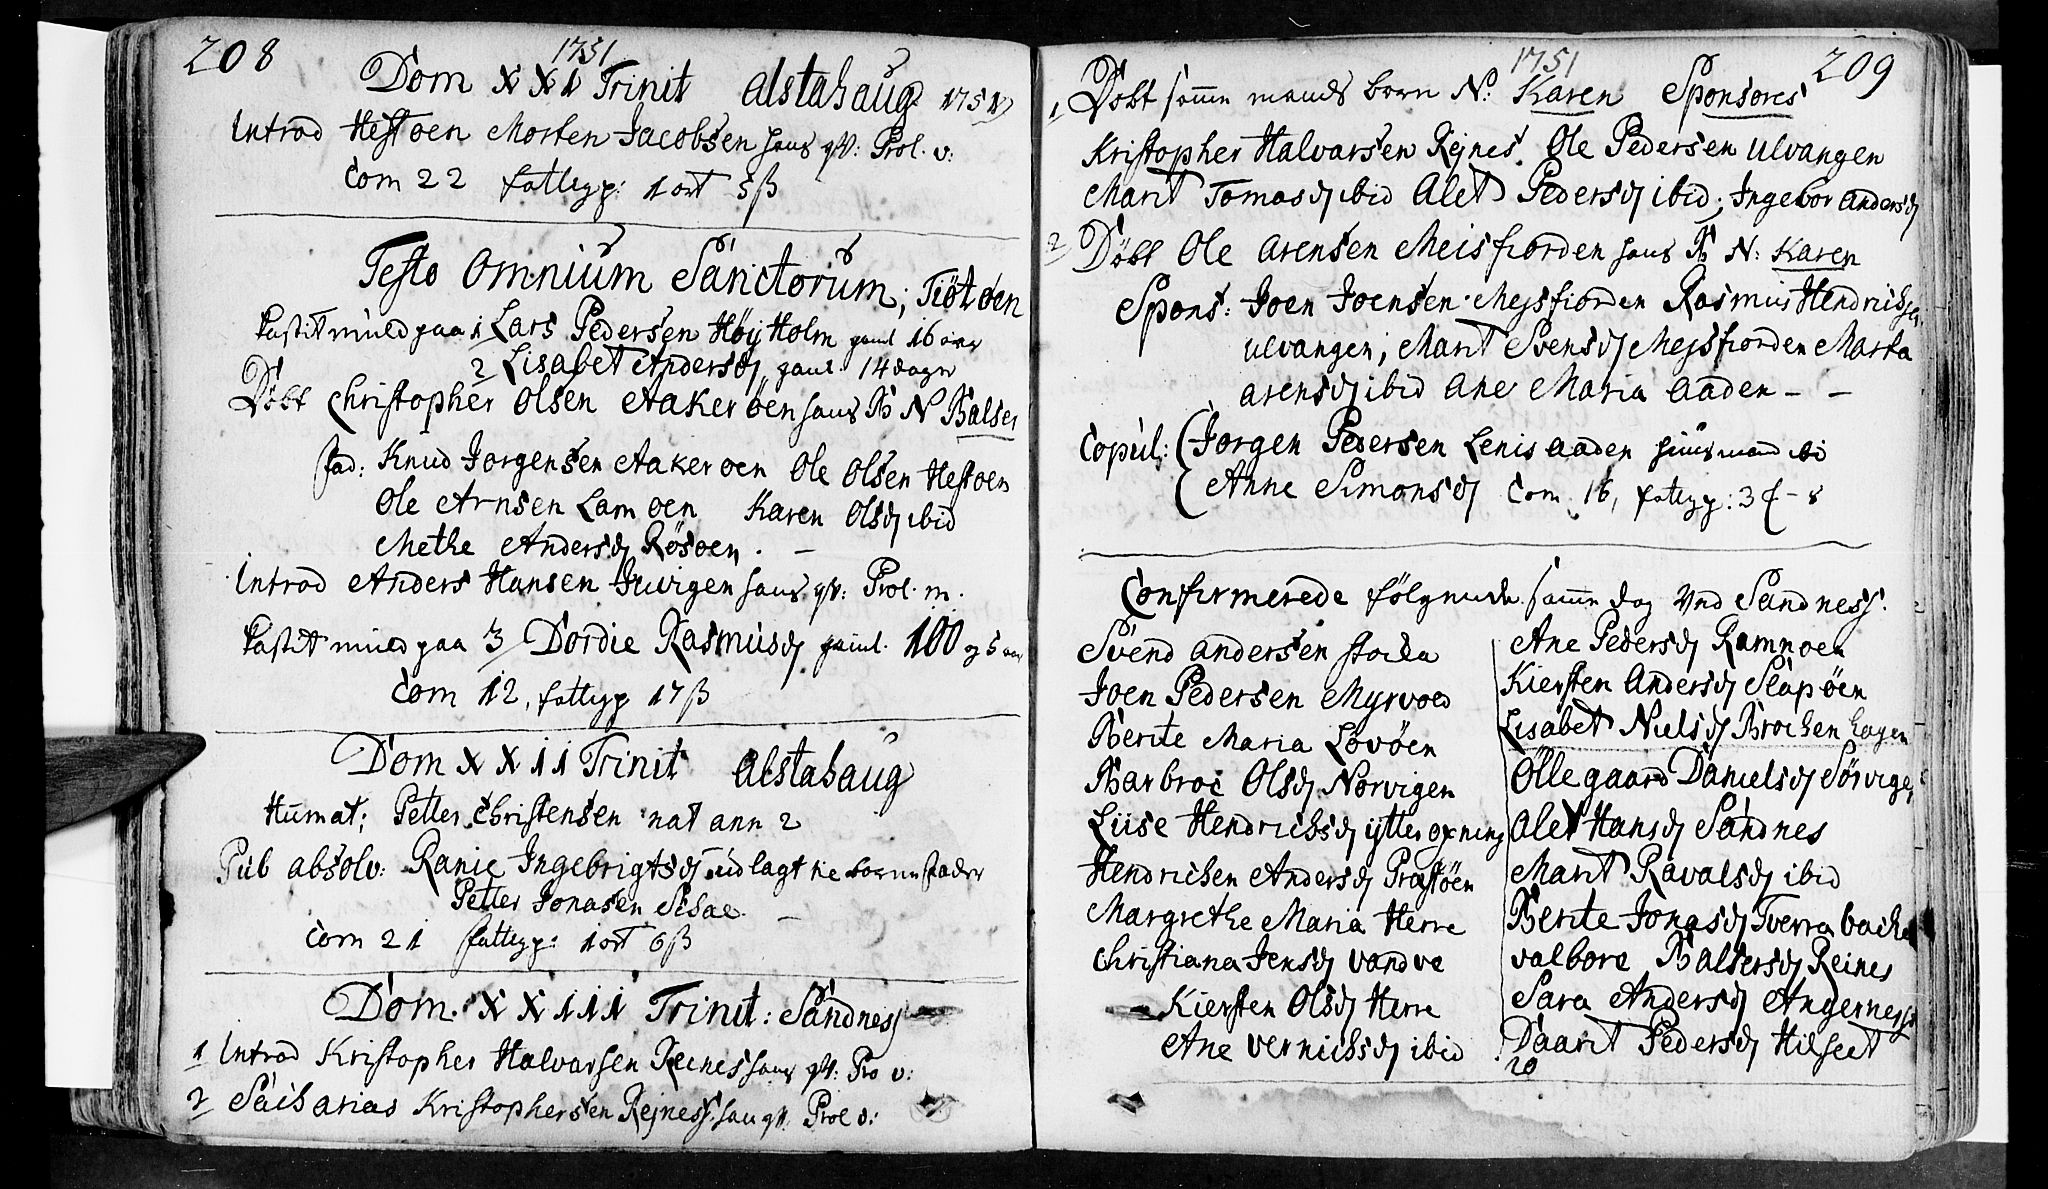 208
1751
Dom XXI Trinit Alstahaug 1751
Introd Hestöen Morten Jacobsen hans qv: Prol. v:
Com 22 fattigp: 1 ort 5 ß
Festo Omnium Sanctorum; Tiötöen
Kastit muld paa 1 Lars Pedersen Höyholm gaml 16 aar
2 Lisabet Andersd gaml 14 dage
Döbt Christopher Olsen Aakeröen hans B N Balser
fad: Knud Jorgensen Aakeroen Ole Olsen Hestoen
Ole Arnsen Lamoen Karen Olsd ibid
Methe Andersd Rösoen. –
Introd Anders Hansen Juvigen hans qv: Prol. m.
Kastit muld paa 3 Dordie Rasmusd gaml. 100 og 5 aar
Com 12, fattigp 17 ß
Dom XXII Trinit Alstahaug
Humat; Petter Christensen nat ann 2
Pub absolv: Ranie Ingebrigtsd udlagt tie barnefader
Petter Jonasen –
Com 21 fattigp: 1 ort 6 ß
Dom. XXIII Trinit: Sandness
1 Introd Kristopher Halvorsen Reines hans qv: Pro v:
2 Sacharias Kristophersen Rejness: hans qv: Prol v:
1751
209
1 Döbt samme mands barn N: Karen Sponsores
Kristopher Halvarsen Rejnes. Ole Pedersen Ulvangen
Marit Tomasd ibid Alet Pedersd ibid; Ingebor Andersd
2 Döbt Ole Arensen Meisfiorden hans B N: Karen
Spons: Joen Joensen Mejsfiorden Rasmus Hendrichsen
Ulvangen; Marit Svensd Mejsfiorden Marta
Arensd ibid Ane Maria Aaden – –
Copul: Jorgen Pedersen Lenis Aaden huusmand ibi
Anne Simonsd Com 16, fattigp: 3 – 8
Confirmerede fölgende samme dag ved Sandness:
Svend Andersen Stocka
Joen Pedersen Myrvold
Berite Maria Lövöen
Barbroe Olsd Norvigen
Liise Hendrichsd ytter öxning
Hendrichen Andersd Præstöen
Margrethe Maria Herre
Christiana Jensd Vandve
Kiersten Olsd Herre
Ane Vernichsd ibid
Ane Pedersd Ramnoen
Kiersten Andersd Slapöen
Lisabet Nielsd Brochenhagen
Öllegaard Danielsd Sörvigen
Alet Hansd Sandnes
Marit Ravalsd ibid
Berite Jonasd Tverrabacken
Valbore Balsersd Reines
Sara Andersd Angerness
Daarit Pedersd Hilseet
20